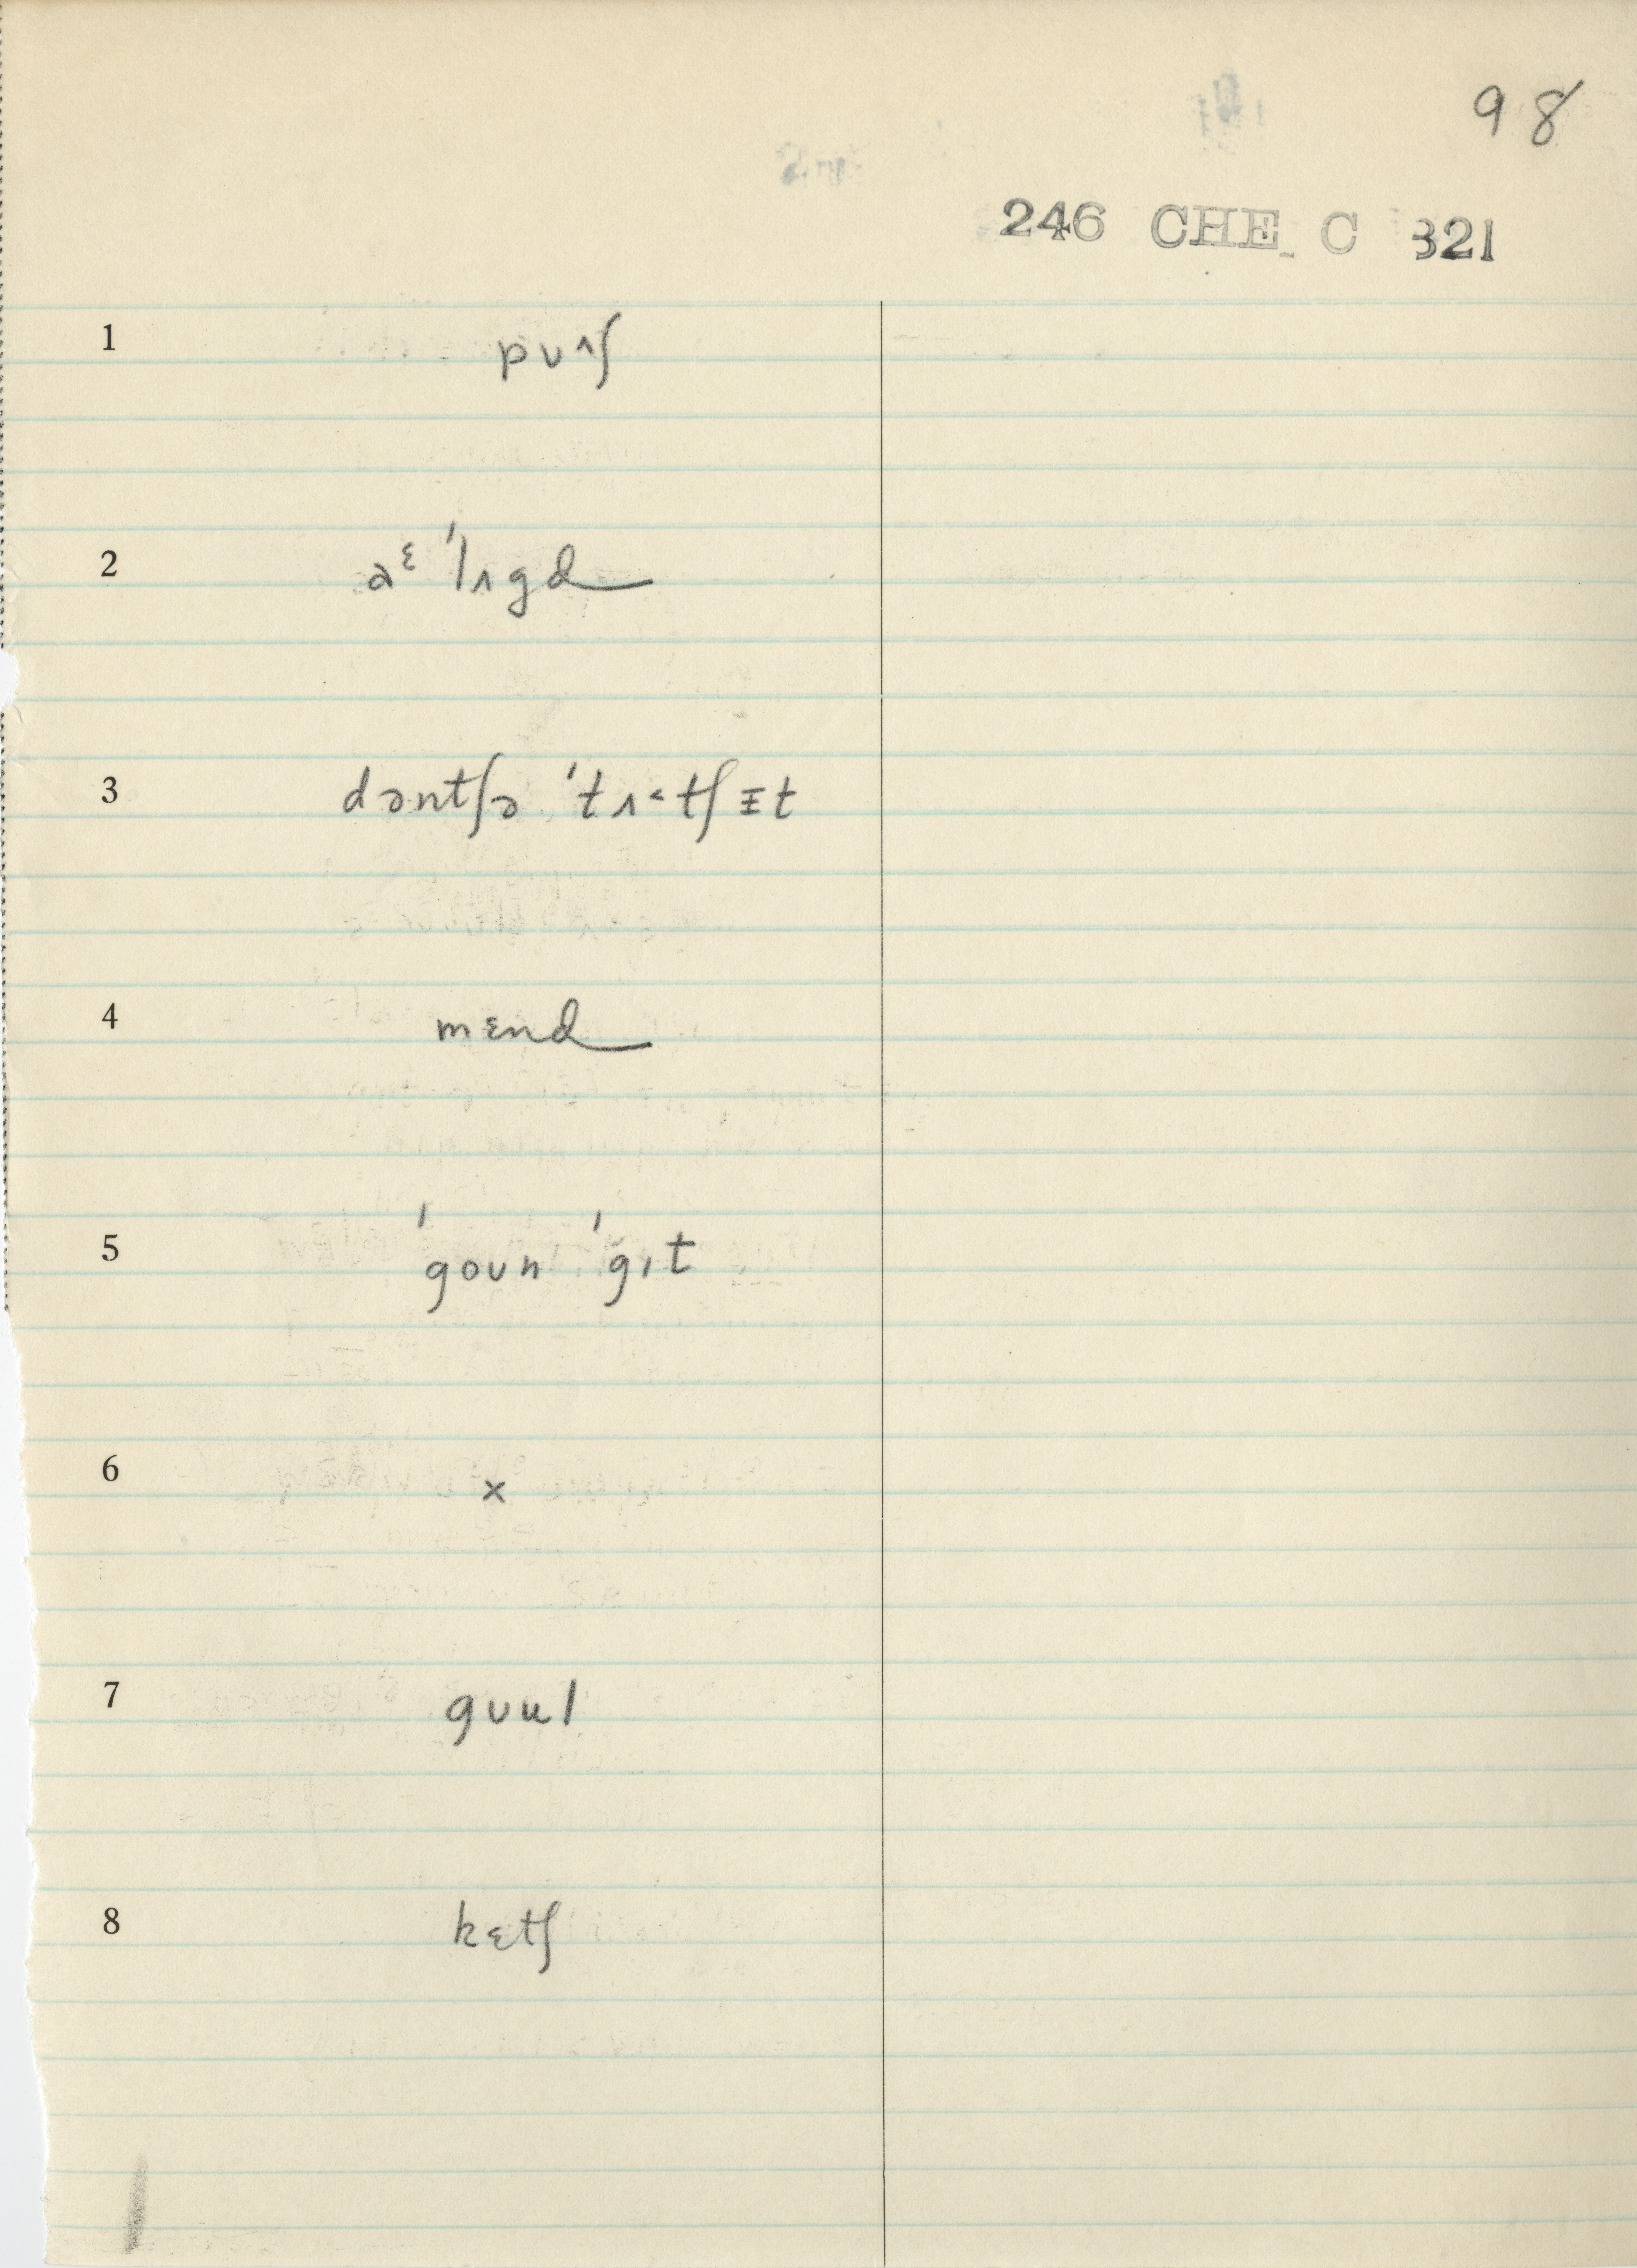 98
246 CHE C 321
1 pʊ^ʃ
2 aᵋ 'lʌgd
3 dəntʃə 'tʌ˂tʃɪt
4 mɛnd
5 'goʊn 'gɪt
6 x
7 gʊul
8 kɛtʃ